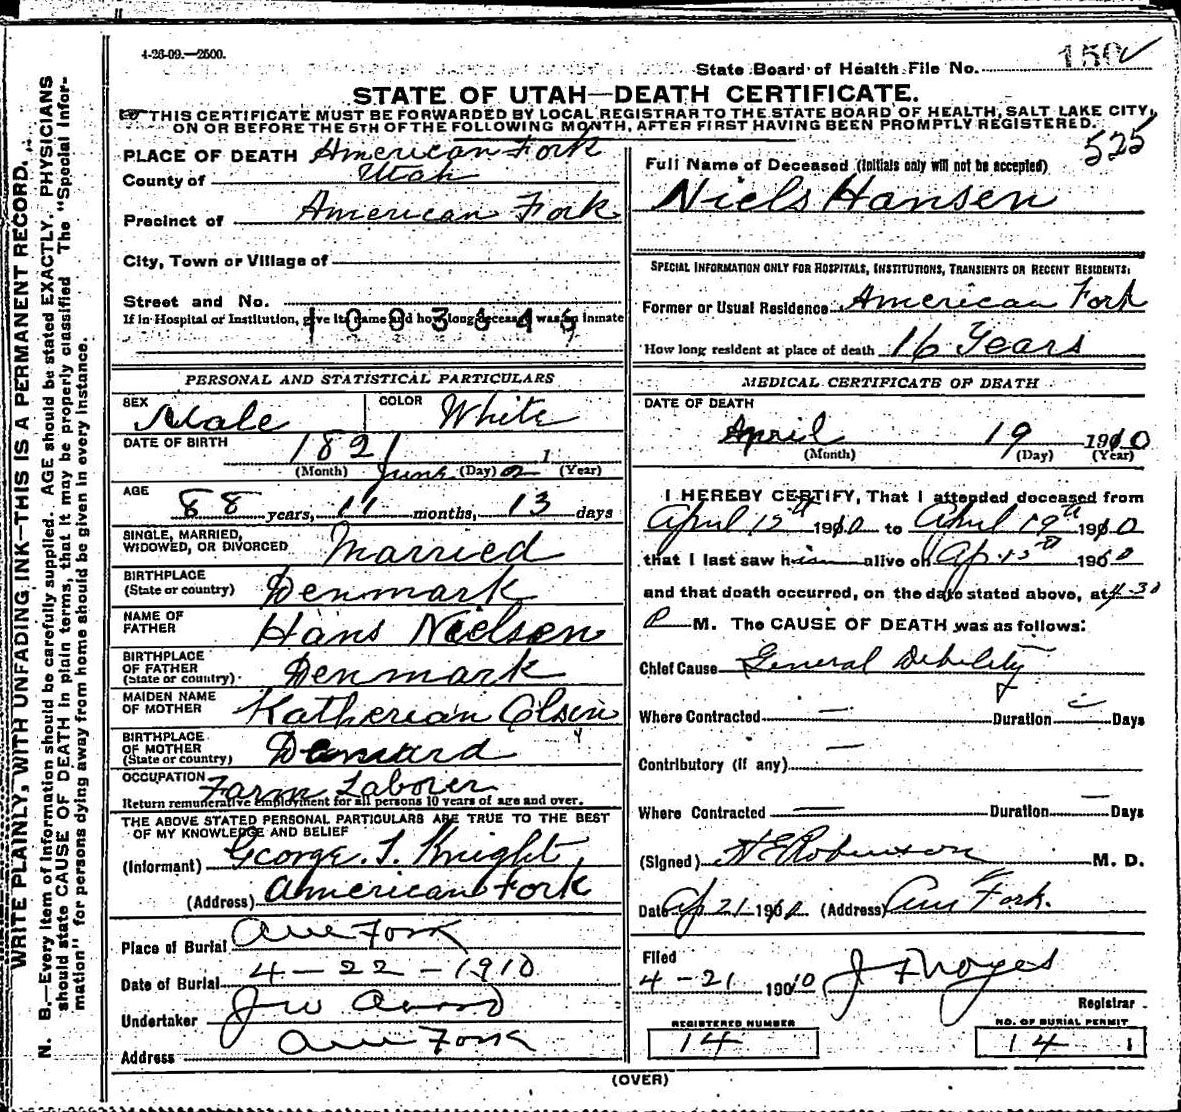 4-26-09.—2500.
State Board of Health File No. 150
STATE OF UTAH—DEATH CERTIFICATE.
THIS CERTIFICATE MUST BE FORWARDED BY LOCAL REGISTRAR TO THE STATE BOARD OF HEALTH, SALT LAKE CITY,
ON OR BEFORE THE 5TH OF THE FOLLOWING MONTH, AFTER FIRST HAVING BEEN PROMPTLY REGISTERED.
525
PLACE OF DEATH American Fork
County of Utah
Precinct of American Fork
City, Town or Village of
Street and No.
If in Hospital or Institution, give its name and how long deceased was an inmate
PERSONAL AND STATISTICAL PARTICULARS
SEX Male COLOR White
DATE OF BIRTH 1821
(Month) June (Day) 2 (Year) 1
AGE 88 years, 11 months, 13 days
SINGLE, MARRIED,
WIDOWED, OR DIVORCED Married
BIRTHPLACE
(State or country) Denmark
NAME OF
FATHER Hans Nielsen
BIRTHPLACE
OF FATHER
(State or country) Denmark
MAIDEN NAME
OF MOTHER Katherian Olsen
BIRTHPLACE
OF MOTHER
(State or country)
OCCUPATION Farm Laborer
Return remunerative employment for all persons 10 years of age and over.
THE ABOVE STATED PERSONAL PARTICULARS ARE TRUE TO THE BEST
OF MY KNOWLEDGE AND BELIEF
(Informant) George T. Knight
(Address) American Fork
Place of Burial Am Fork
Date of Burial 4-22-1910
Undertaker J W
Address Am Fork
Full Name of Deceased (Initials only will not be accepted)
Niels Hansen
SPECIAL INFORMATION ONLY FOR HOSPITALS, INSTITUTIONS, TRANSIENTS OR RECENT RESIDENTS:
Former or Usual Residence American Fork
How long resident at place of death 16 Years
MEDICAL CERTIFICATE OF DEATH
DATE OF DEATH
April 19 1910
(Month) (Day) (Year)
I HEREBY CERTIFY, That I attended deceased from
April 15th 1910 to April 19th 1910
that I last saw him alive on Ap. 15th 1910
and that death occurred, on the date stated above, at 4-30
P M. The CAUSE OF DEATH was as follows:
Chief Cause General Debility
Where Contracted — Duration — Days
Contributory (if any) —
Where Contracted — Duration — Days
(Signed) Robinson M. D.
Date Ap 21 1910 (Address) Am Fork.
Filed
4-21 1910 J F Noyes
Registrar
REGISTERED NUMBER
14
NO. OF BURIAL PERMIT
14
(OVER)
WRITE PLAINLY, WITH UNFADING INK—THIS IS A PERMANENT RECORD.
N. B.—Every item of information should be carefully supplied. AGE should be stated EXACTLY. PHYSICIANS
should state CAUSE OF DEATH in plain terms, that it may be properly classified The "Special Infor-
mation" for persons dying away from home should be given in every instance.